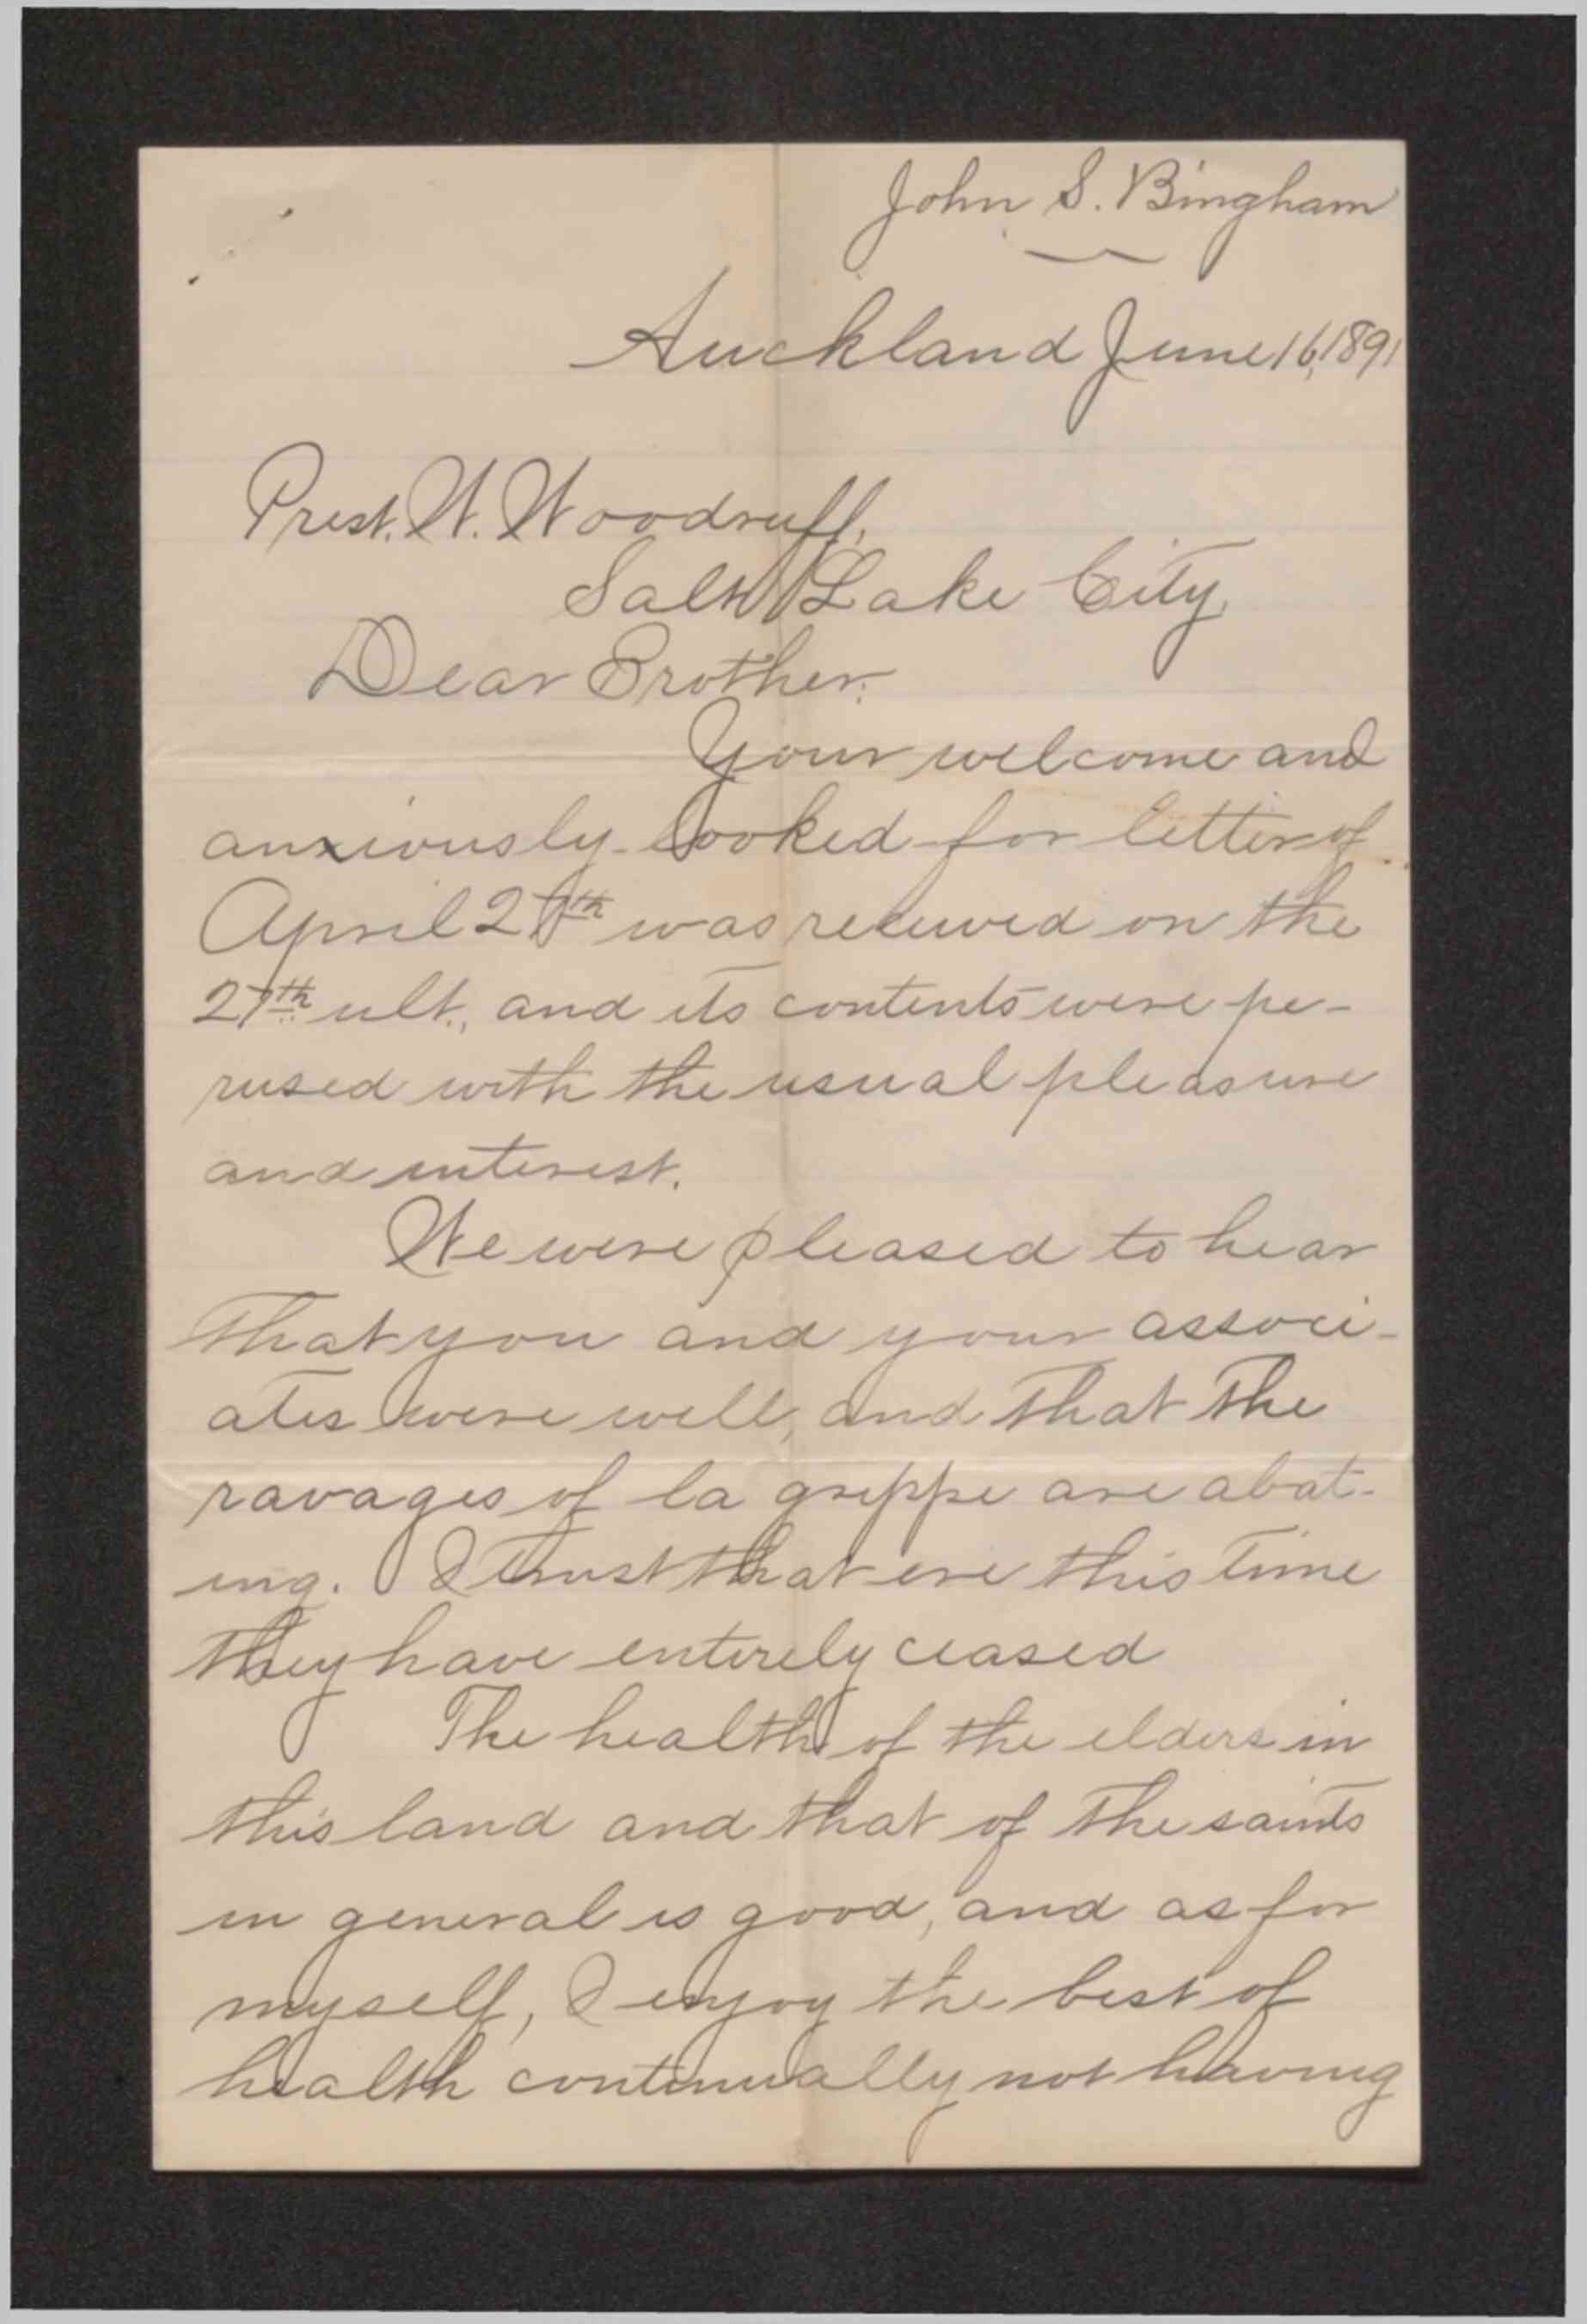 John S. Bingham
Auckland June 16, 1891
Prest. W. Woodruff,
Salt Lake City,
Dear Brother:
Your welcome and
anxiously looked for letter of
April 28th was received on the
27th ult., and its contents were pe-
rused with the usual pleasure
and interest.
We were pleased to hear
that you and your associ-
ates were well, and that the
ravages of la grippe are abat-
ing. I trust that ere this time
they have entirely ceased
The health of the elders in
this land and that of the saints
in general is good, and as for
myself, I enjoy the best of
health continually not having